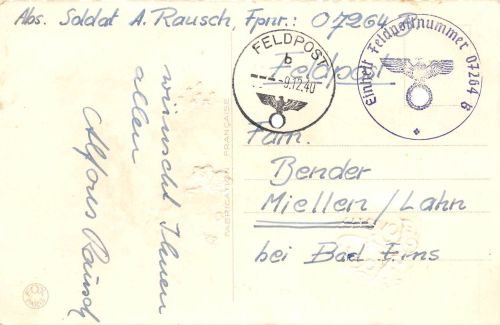 Abs. Soldat A. Rausch, Fpnr.: 07264 B
Feldpost
FELDPOST
b
-9.12.40
Einheit Feldpostnummer 07264 B
Fam.
Bender
Miellen/Lahn
bei Bad Ems
wünscht Ihnen
allen
Alfons Rausch
FABRICATION FRANÇAISE
PARIS